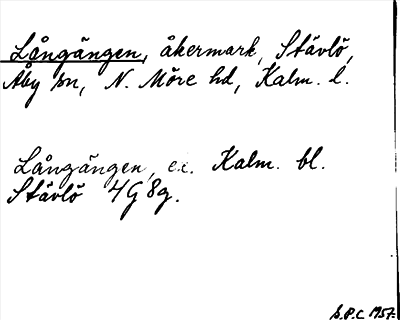 Långängen, åkermark, Stävlö,
Åby sn, N. Möre hd, Kalm. l.
Långängen, e.k. Kalm. bl.
Stävlö 4G 8g.
B.P.C. 1957.